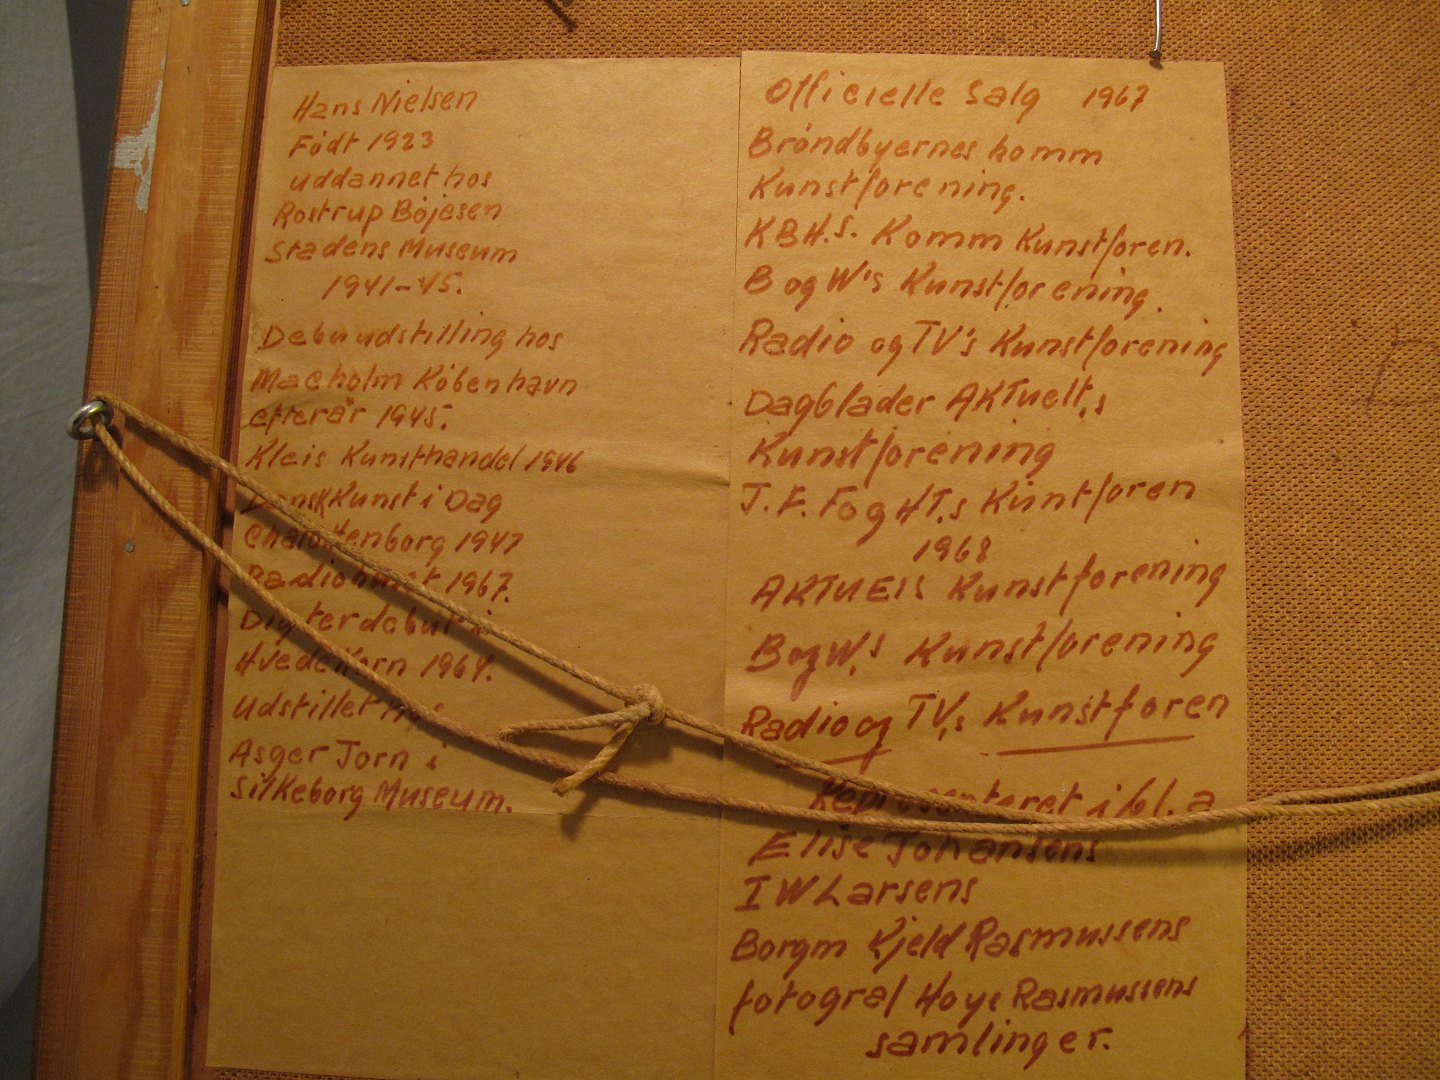 Hans Nielsen
Født 1923
uddannet hos
Rostrup Bøjesen
Stadens Museum
1941-45.
Debuudstilling hos
Macholm København
efterår 1945.
Kleis Kunsthandel 1946
Dansk Kunst i Dag
Charlottenborg 1947
Radiohuset 1967.
Digterdebut i
Hvedekorn 1964.
Udstillet hos
Asger Jorn i
Silkeborg Museum.
Officielle Salg 1967
Brøndbyernes komm
Kunstforening.
KBH.S. Komm Kunstforen.
B og W's Kunstforening.
Radio og TV's Kunstforening
Dagblader AKTuelt,s
Kunstforening
J.F. FogHT,s Kunstforen
1968
AKTUEls Kunstforening
B og W,s Kunstforening
Radio og TV,s Kunstforen
Repræsenteret i bl.a
Elise Johansens
I W Larsens
Borgm Kjeld Rasmussens
fotograf Hoye Rasmussens
samlinger.